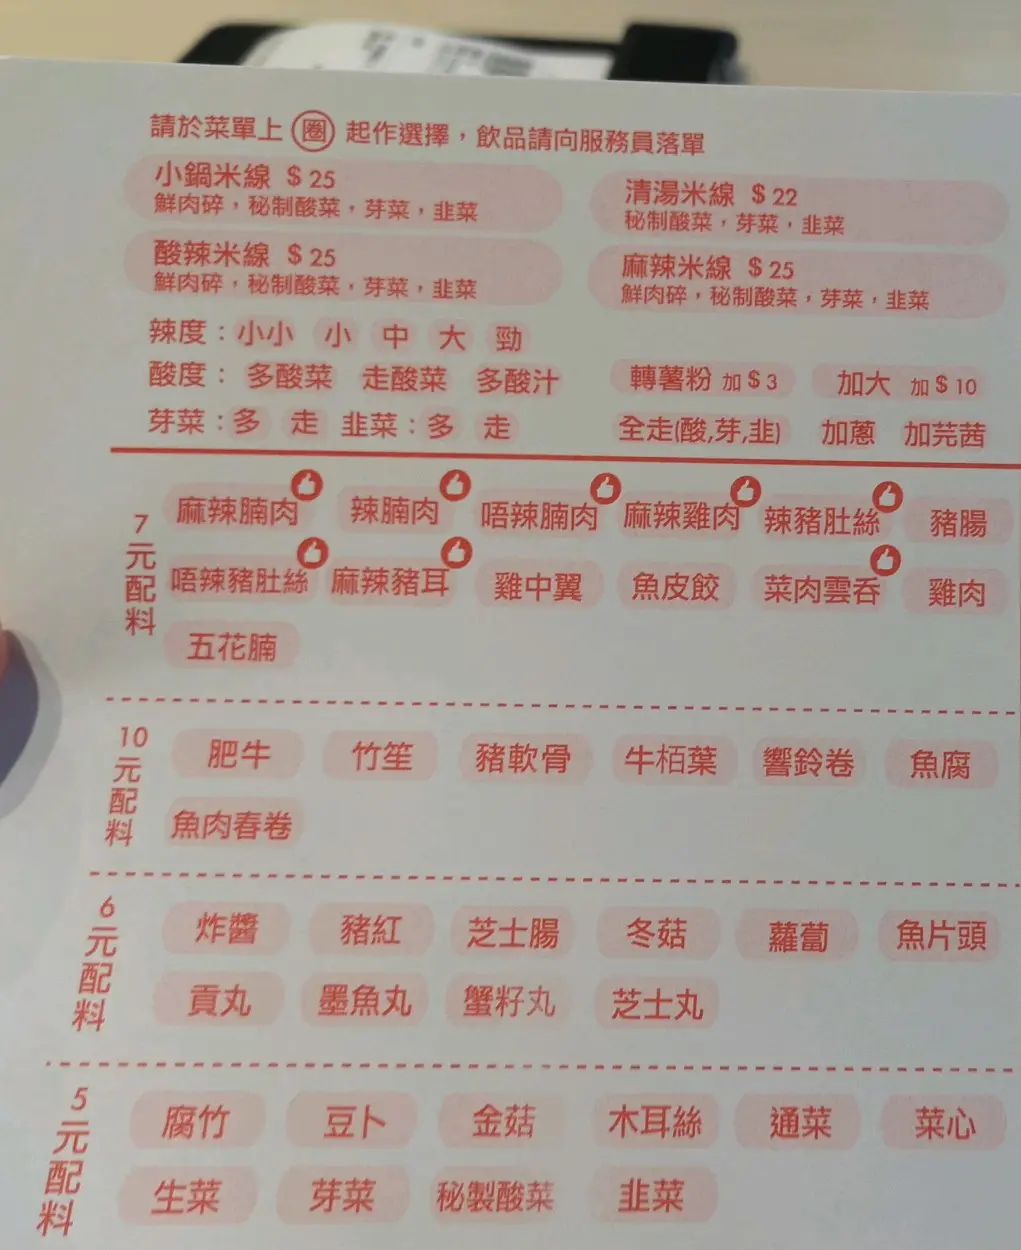 請於菜單上 圈 起作選擇，飲品請向服務員落單
小鍋米線 $25
鮮肉碎，秘制酸菜，芽菜，韭菜
清湯米線 $22
秘制酸菜，芽菜，韭菜
酸辣米線 $25
鮮肉碎，秘制酸菜，芽菜，韭菜
麻辣米線 $25
鮮肉碎，秘制酸菜，芽菜，韭菜
辣度：小小 小 中 大 勁
酸度： 多酸菜 走酸菜 多酸汁
轉薯粉 加$3 加大 加$10
芽菜：多 走 韭菜：多 走
全走(酸,芽,韭) 加蔥 加芫茜
7元配料
麻辣腩肉 辣腩肉 唔辣腩肉 麻辣雞肉 辣豬肚絲 豬腸
唔辣豬肚絲 麻辣豬耳 雞中翼 魚皮餃 菜肉雲吞 雞肉
五花腩
10元配料
肥牛 竹笙 豬軟骨 牛栢葉 響鈴卷 魚腐
魚肉春卷
6元配料
炸醬 豬紅 芝士腸 冬菇 蘿蔔 魚片頭
貢丸 墨魚丸 蟹籽丸 芝士丸
5元配料
腐竹 豆卜 金菇 木耳絲 通菜 菜心
生菜 芽菜 秘製酸菜 韭菜